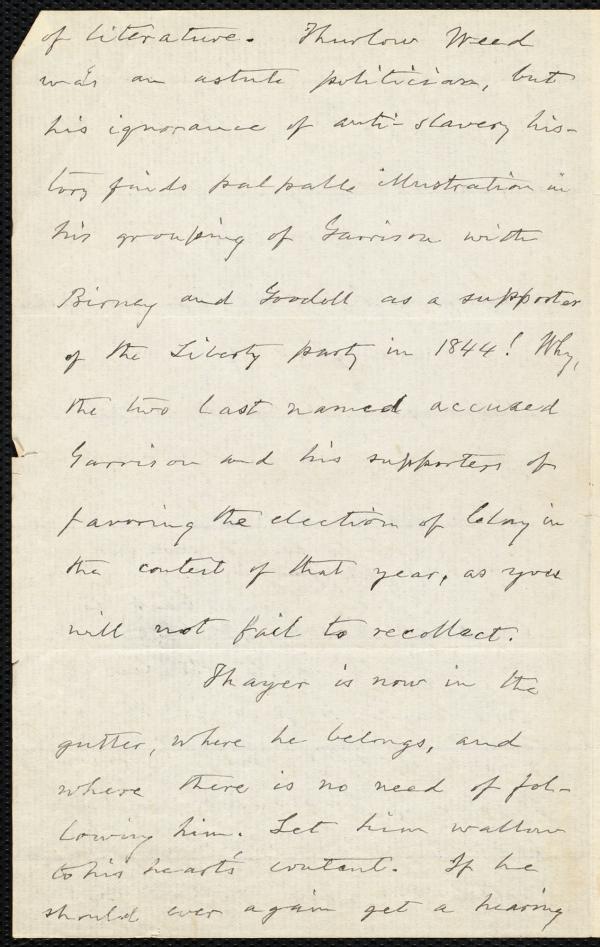 of literature. Thurlow Weed
was an astute politician, but
his ignorance of anti-slavery his-
tory finds palpable illustration in
his grouping of Garrison with
Birney and Goodell as a supporter
of the Liberty party in 1844! Why,
the two last named accused
Garrison and his supporters of
favoring the election of Clay in
the contest of that year, as you
will not fail to recollect.
Thayer is now in the
gutter, where he belongs, and
where there is no need of fol-
lowing him. Let him wallow
to his heart's content. If he
should ever again get a hearing